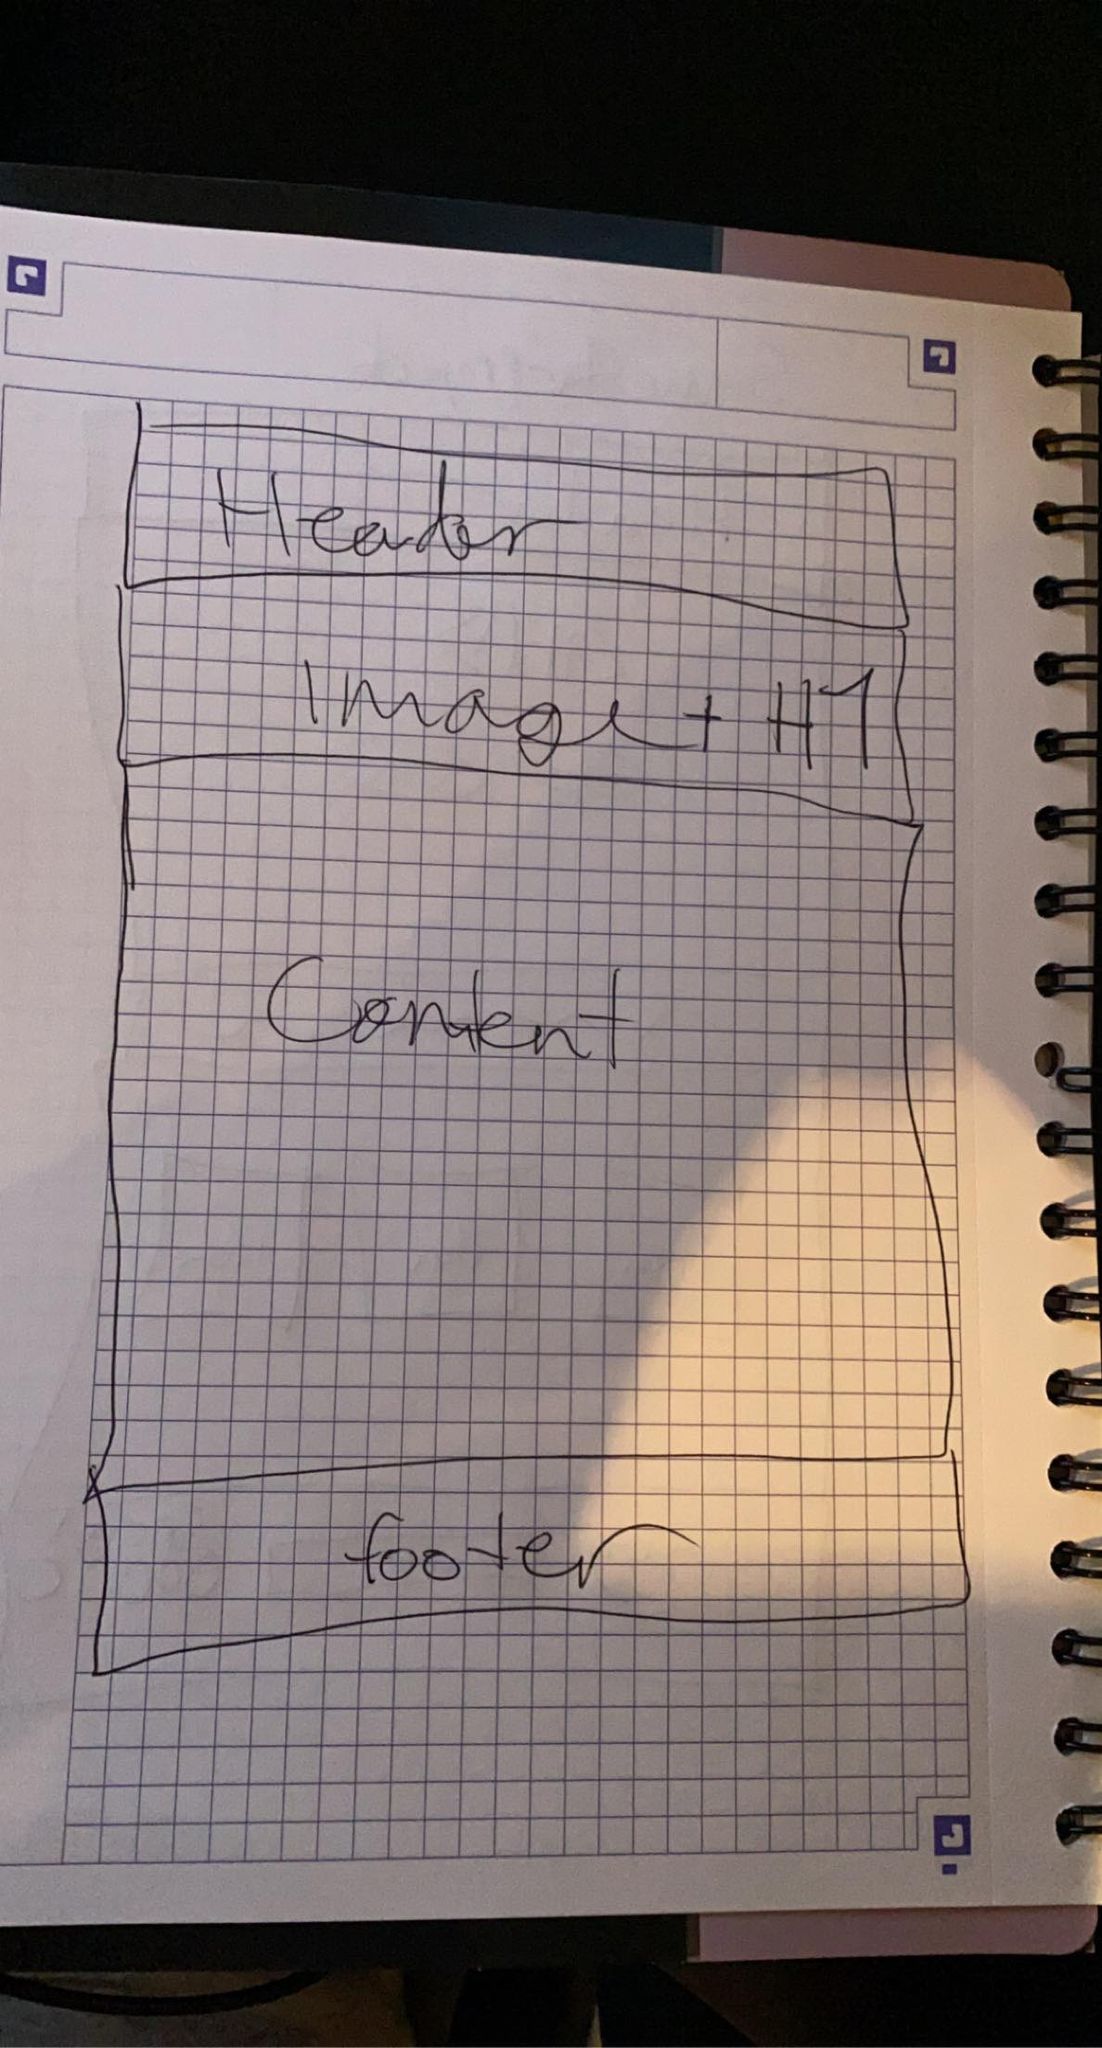 Header
Image + H1
Content
footer